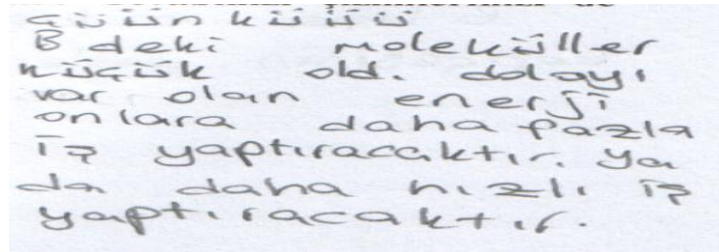 Çüün küüü
B deki moleküller
küçük old. dolayı
var olan enerji
onlara daha fazla
iş yaptıracaktır. Ya
da daha hızlı iş
yaptıracaktır.